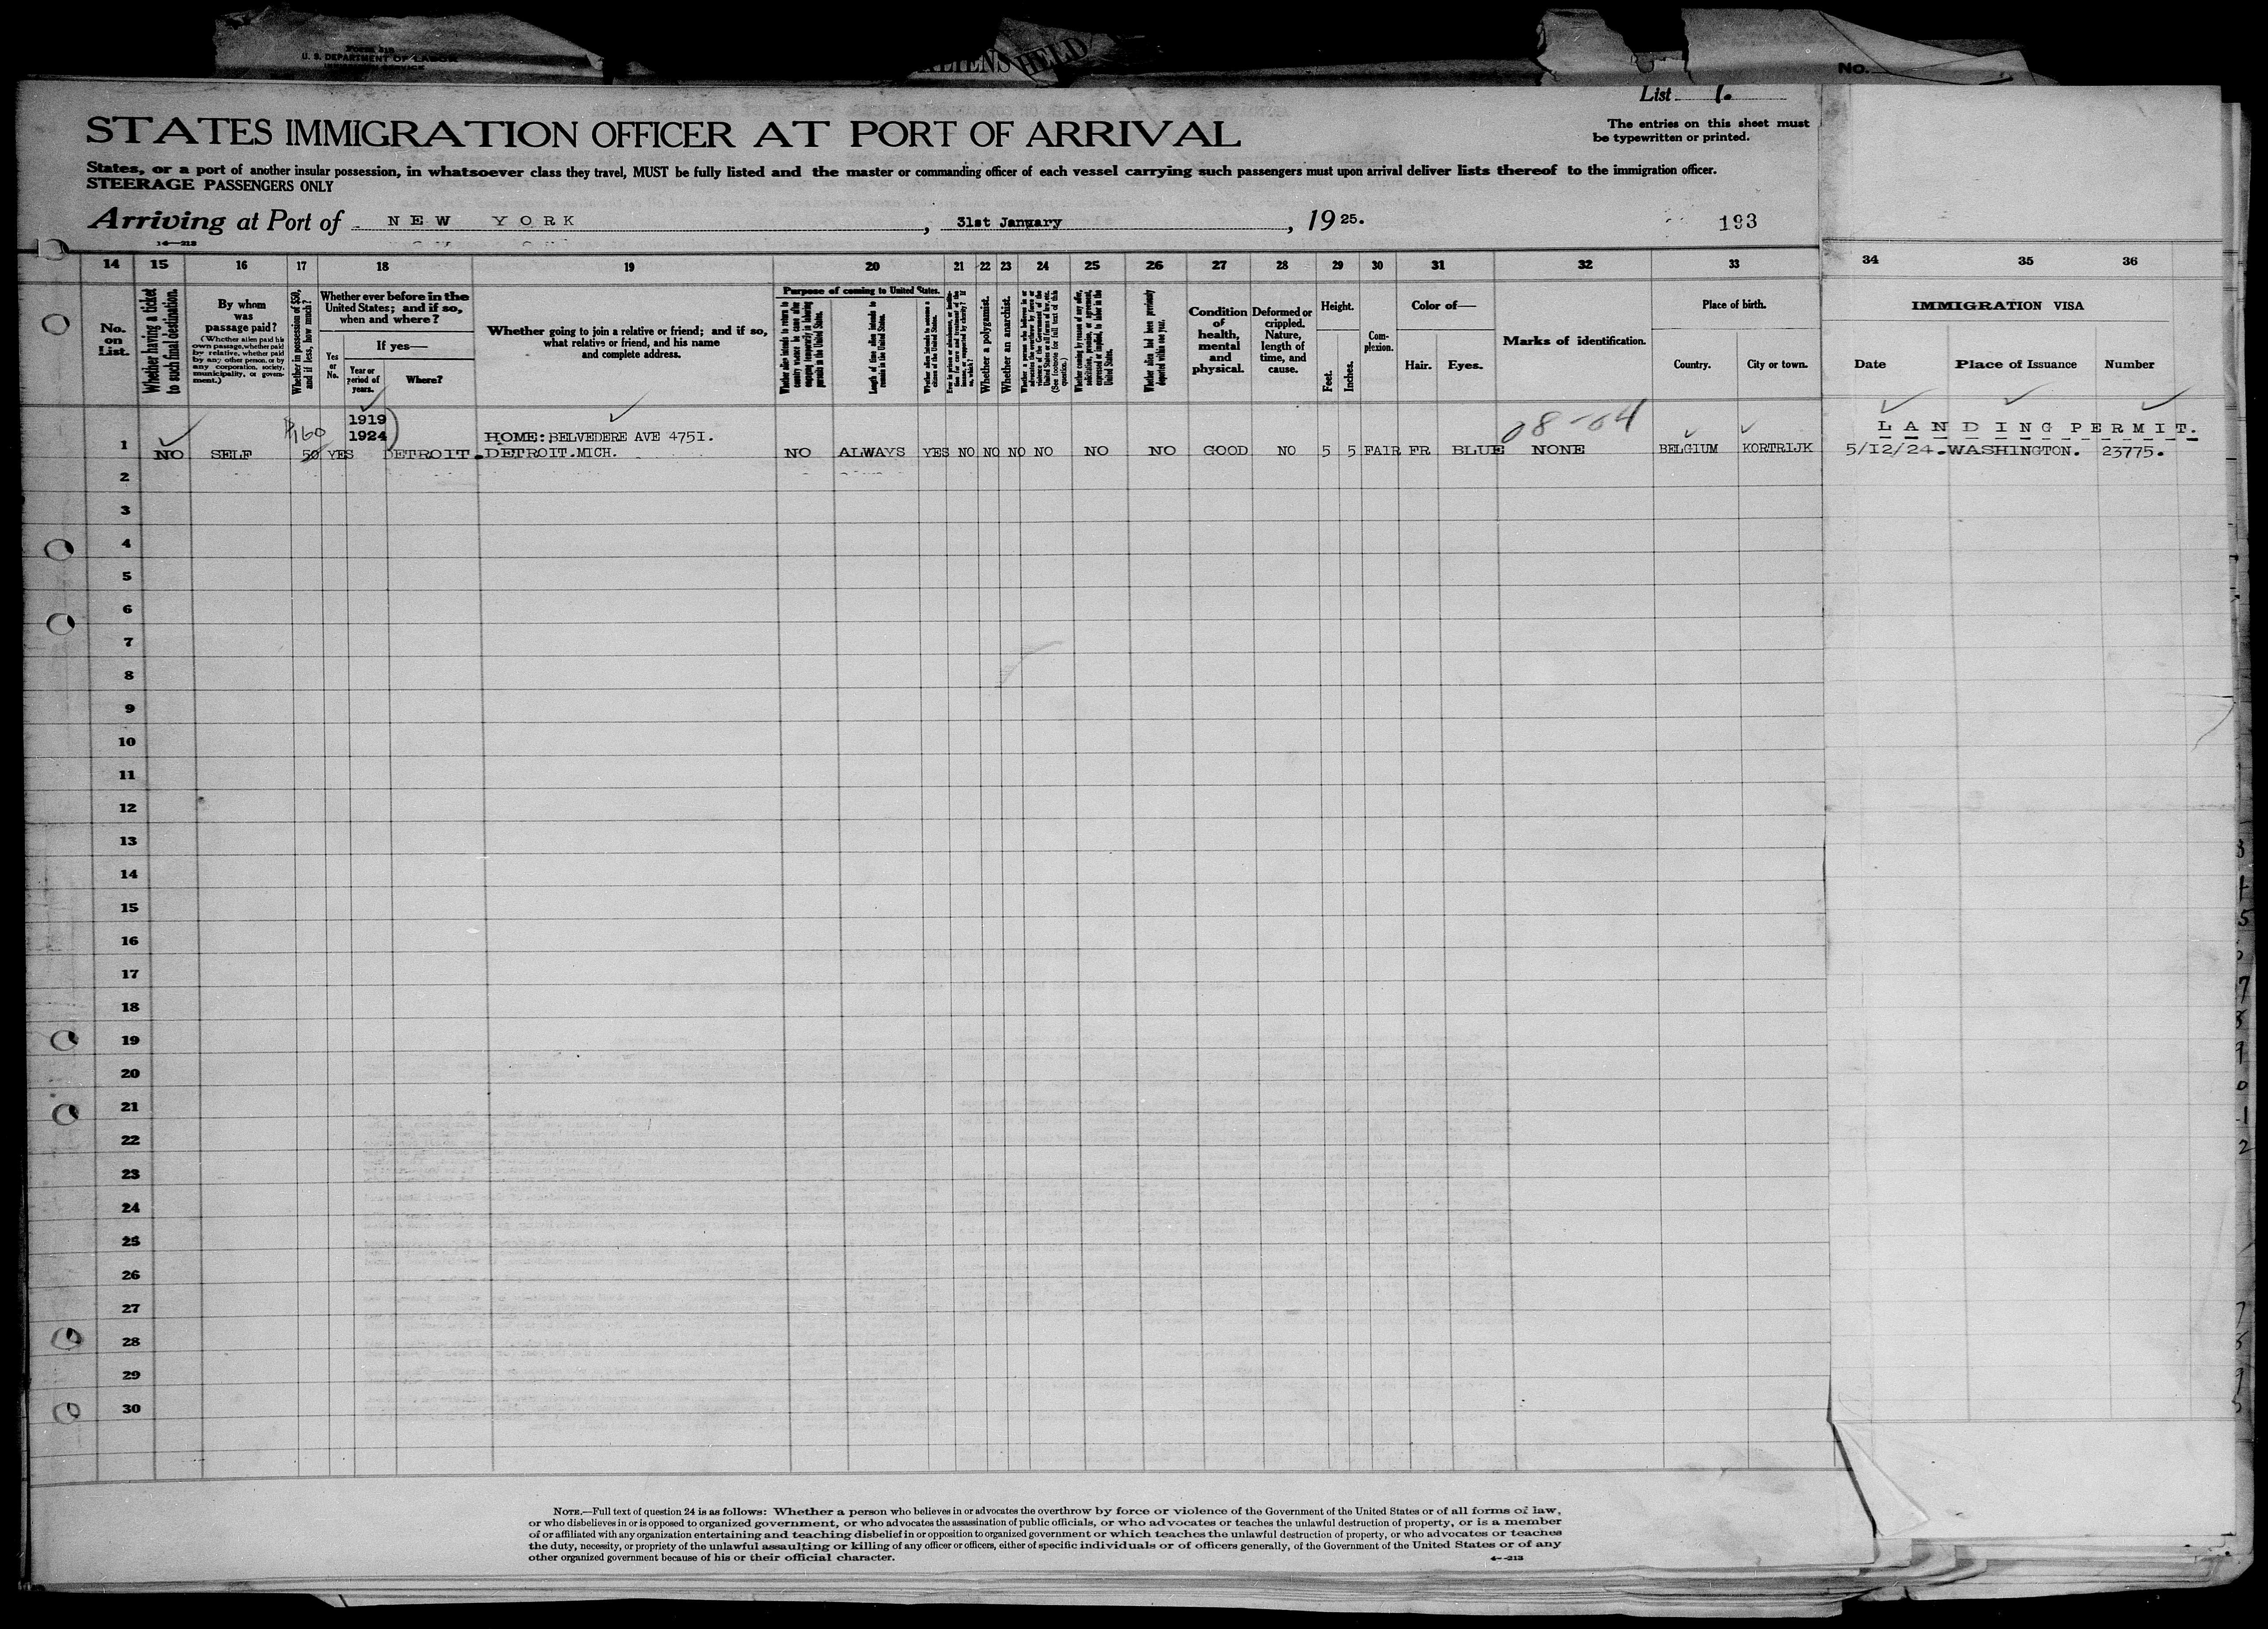 FORM 218
U. S. DEPARTMENT OF LABOR
ALIENS HELD
No.
List 1.
The entries on this sheet must
be typewritten or printed.
STATES IMMIGRATION OFFICER AT PORT OF ARRIVAL
States, or a port of another insular possession, in whatsoever class they travel, MUST be fully listed and the master or commanding officer of each vessel carrying such passengers must upon arrival deliver lists thereof to the immigration officer.
STEERAGE PASSENGERS ONLY
Arriving at Port of NEW YORK, 31st January, 1925.
193
14 15 16 17 18 19 20 21 22 23 24 25 26 27 28 29 30 31 32 33 34 35 36
No.
on
List.
Whether having a ticket
to such final destination.
By whom
was
passage paid?
(Whether alien paid his
own passage, whether paid
by relative, whether paid
by any other person, or by
any corporation, society,
municipality, or govern-
ment.)
Whether in possession of $50,
and if less, how much?
Whether ever before in the
United States; and if so,
when and where?
Yes
or
No.
If yes—
Year or
period of
years.
Where?
Whether going to join a relative or friend; and if so,
what relative or friend, and his name
and complete address.
Purpose of coming to United States.
Whether alien intends to return to
country whence he came after
engaging temporarily in laboring
pursuits in the United States.
Length of time alien intends to
remain in the United States.
Whether alien intends to become a
citizen of the United States.
Whether a polygamist.
Whether an anarchist.
(See footnote for full text of this
question.)
Whether coming by reason of any offer,
solicitation, promise, or agreement,
expressed or implied, to labor in the
United States.
Whether alien had been previously
deported within one year.
Condition
of
health,
mental
and
physical.
Deformed or
crippled.
Nature,
length of
time, and
cause.
Height.
Feet.
Inches.
Com-
plexion.
Color of—
Hair. Eyes.
Marks of identification.
Place of birth.
Country. City or town.
IMMIGRATION VISA
Date Place of Issuance Number
$160
1919
1924
HOME: BELVEDERE AVE 475I.
08-04
LANDING PERMIT.
1 NO SELF 50 YES DETROIT. DETROIT.MICH. NO ALWAYS YES NO NO NO NO NO NO GOOD NO 5 5 FAIR FR BLUE NONE BELGIUM KORTRIJK 5/I2/24. WASHINGTON. 23775.
2
3
4
5
6
7
8
9
10
11
12
13
14
15
16
17
18
19
20
21
22
23
24
25
26
27
28
29
30
NOTE.—Full text of question 24 is as follows: Whether a person who believes in or advocates the overthrow by force or violence of the Government of the United States or of all forms of law,
or who disbelieves in or is opposed to organized government, or who advocates the assassination of public officials, or who advocates or teaches the unlawful destruction of property, or is a member
of or affiliated with any organization entertaining and teaching disbelief in or opposition to organized government or which teaches the unlawful destruction of property, or who advocates or teaches
the duty, necessity, or propriety of the unlawful assaulting or killing of any officer or officers, either of specific individuals or of officers generally, of the Government of the United States or of any
other organized government because of his or their official character.